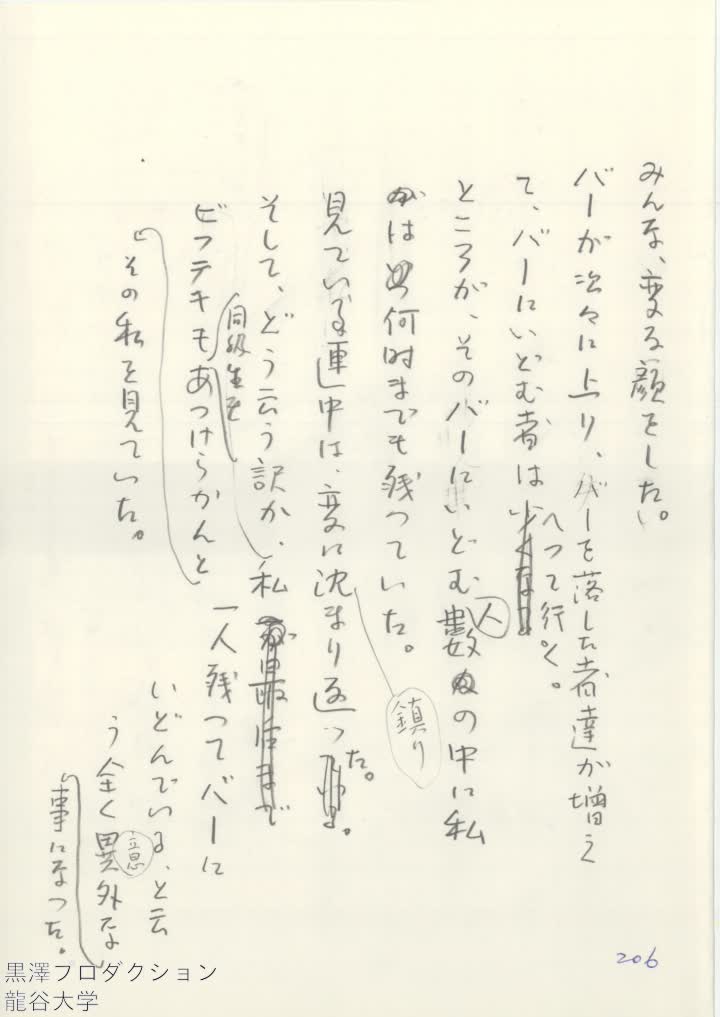 みんな、変な顔をした。
バーが次々に上り、バーを落した者達が増え
て、バーにいどむ者はへって行く。
ところが、そのバーにいどむ数人の中に私
は何時までも残つていた。
見ている連中は、変に沈まり返った。
鎮り
そして、どう云う訳か、私
一人残つてバーに
いどんでいる、と云
う全く異外な
意
事になつた。
同級生を
ビフテキもあつけらかんと
その私を見ていた。
206
黒澤プロダクション
龍谷大学